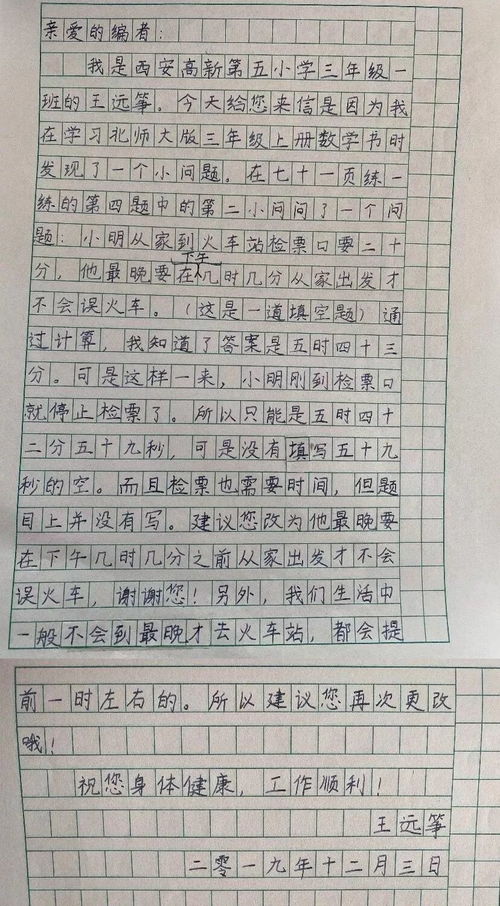 亲爱的编者：
我是西安高新第五小学三年级一
班的王远筝。今天给您来信是因为我
在学习北师大版三年级上册数学书时
发现了一个小问题。在七十一页练一
练的第四题中的第二小问问了一个问
题：小明从家到火车站检票口要二十
分，他最晚要在下午几时几分从家出发才
不会误火车。（这是一道填空题）通
过计算，我知道了答案是五时四十三
分。可是这样一来，小明刚到检票口
就停止检票了。所以只能是五时四十
二分五十九秒，可是没有填写五十九
秒的空。而且检票也需要时间，但题
目上并没有写。建议您改为他最晚要
在下午几时几分之前从家出发才不会
误火车，谢谢您！另外，我们生活中
一般不会到最晚才去火车站，都会提
前一时左右的。所以建议您再次更改
哦！
祝您身体健康，工作顺利！
王远筝
二零一九年十二月三日